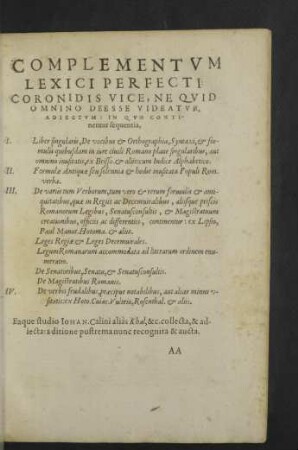 COMPLEMENTVM
LEXICI PERFECTI
CORONIDIS VICE: NE QVID
OMNINO DEESSE VIDEATVR,
ADIECTVM: IN QVO CONTI-
nentur sequentia.
I. Liber singularis, De vocibus & Orthographia, Syntaxi, & for-
mulis quibusdam in iure ciuili Romano planè singularibus, aut
omnino inusitatis, ex Brisso. & aliis cum Indice Alphabetico.
II. Formulæ Antiquæ seu solennia & hodie inusitata Populi Rom.
verba.
III. De varietate Verborum, tum vero & rerum formulis & anti-
quitatibus, quæ in Regiis ac Decemuiralibus, aliisque priscis
Romanorum Legibus, Senatusconsultis, & Magistratuum
creationibus, officiis ac differentiis, continentur: ex Lipsio,
Paul Manut. Hotoma. & aliis.
Leges Regiæ & Leges Decemuirales.
Legum Romanarum accommodata ad litterarum ordinem enu-
meratio.
De Senatoribus, Senatu, & Senatusconsultis.
De Magistratibus Romanis.
IV. De verbis feudalibus, præcipuè notabilibus, aut alias minus v-
Hoto. Cuiac. Vulteio, Rosenthal. & aliis.
Eaque studio IOHAN. Calini aliàs Khal, &c. collecta, & ad-
iecta: editione postrema nunc recognita & aucta.
AA